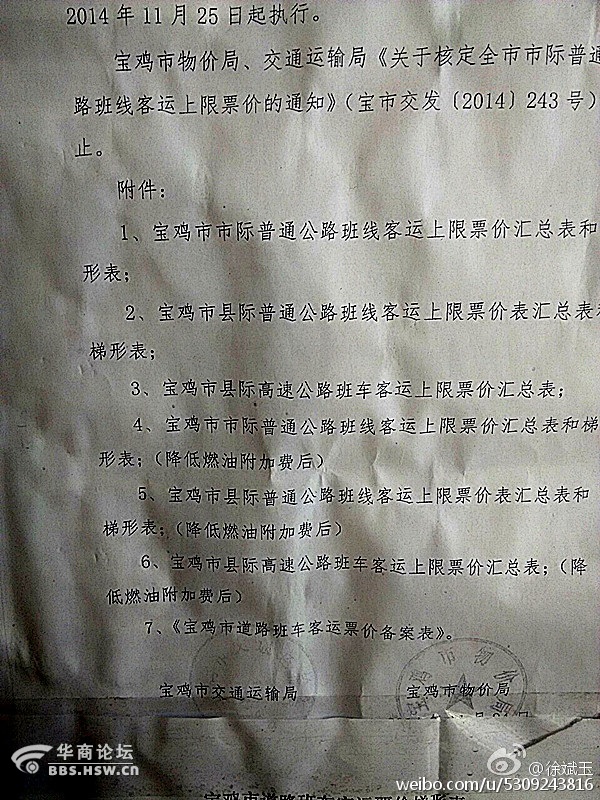 2014年11月25日起执行。
宝鸡市物价局、交通运输局《关于核定全市市际普通
路班线客运上限票价的通知》（宝市交发〔2014〕243号）
止。
附件：
1、宝鸡市市际普通公路班线客运上限票价汇总表和
形表；
2、宝鸡市县际普通公路班线客运上限票价表汇总表和
梯形表；
3、宝鸡市县际高速公路班车客运上限票价汇总表；
4、宝鸡市市际普通公路班线客运上限票价汇总表和梯
形表；（降低燃油附加费后）
5、宝鸡市县际普通公路班线客运上限票价表汇总表和
梯形表；（降低燃油附加费后）
6、宝鸡市县际高速公路班车客运上限票价汇总表；（降
低燃油附加费后）
7、《宝鸡市道路班车客运票价备案表》。
宝鸡市交通运输局 宝鸡市物价局
华商论坛
BBS.HSW.CN
@徐斌玉
weibo.com/u/5309243816